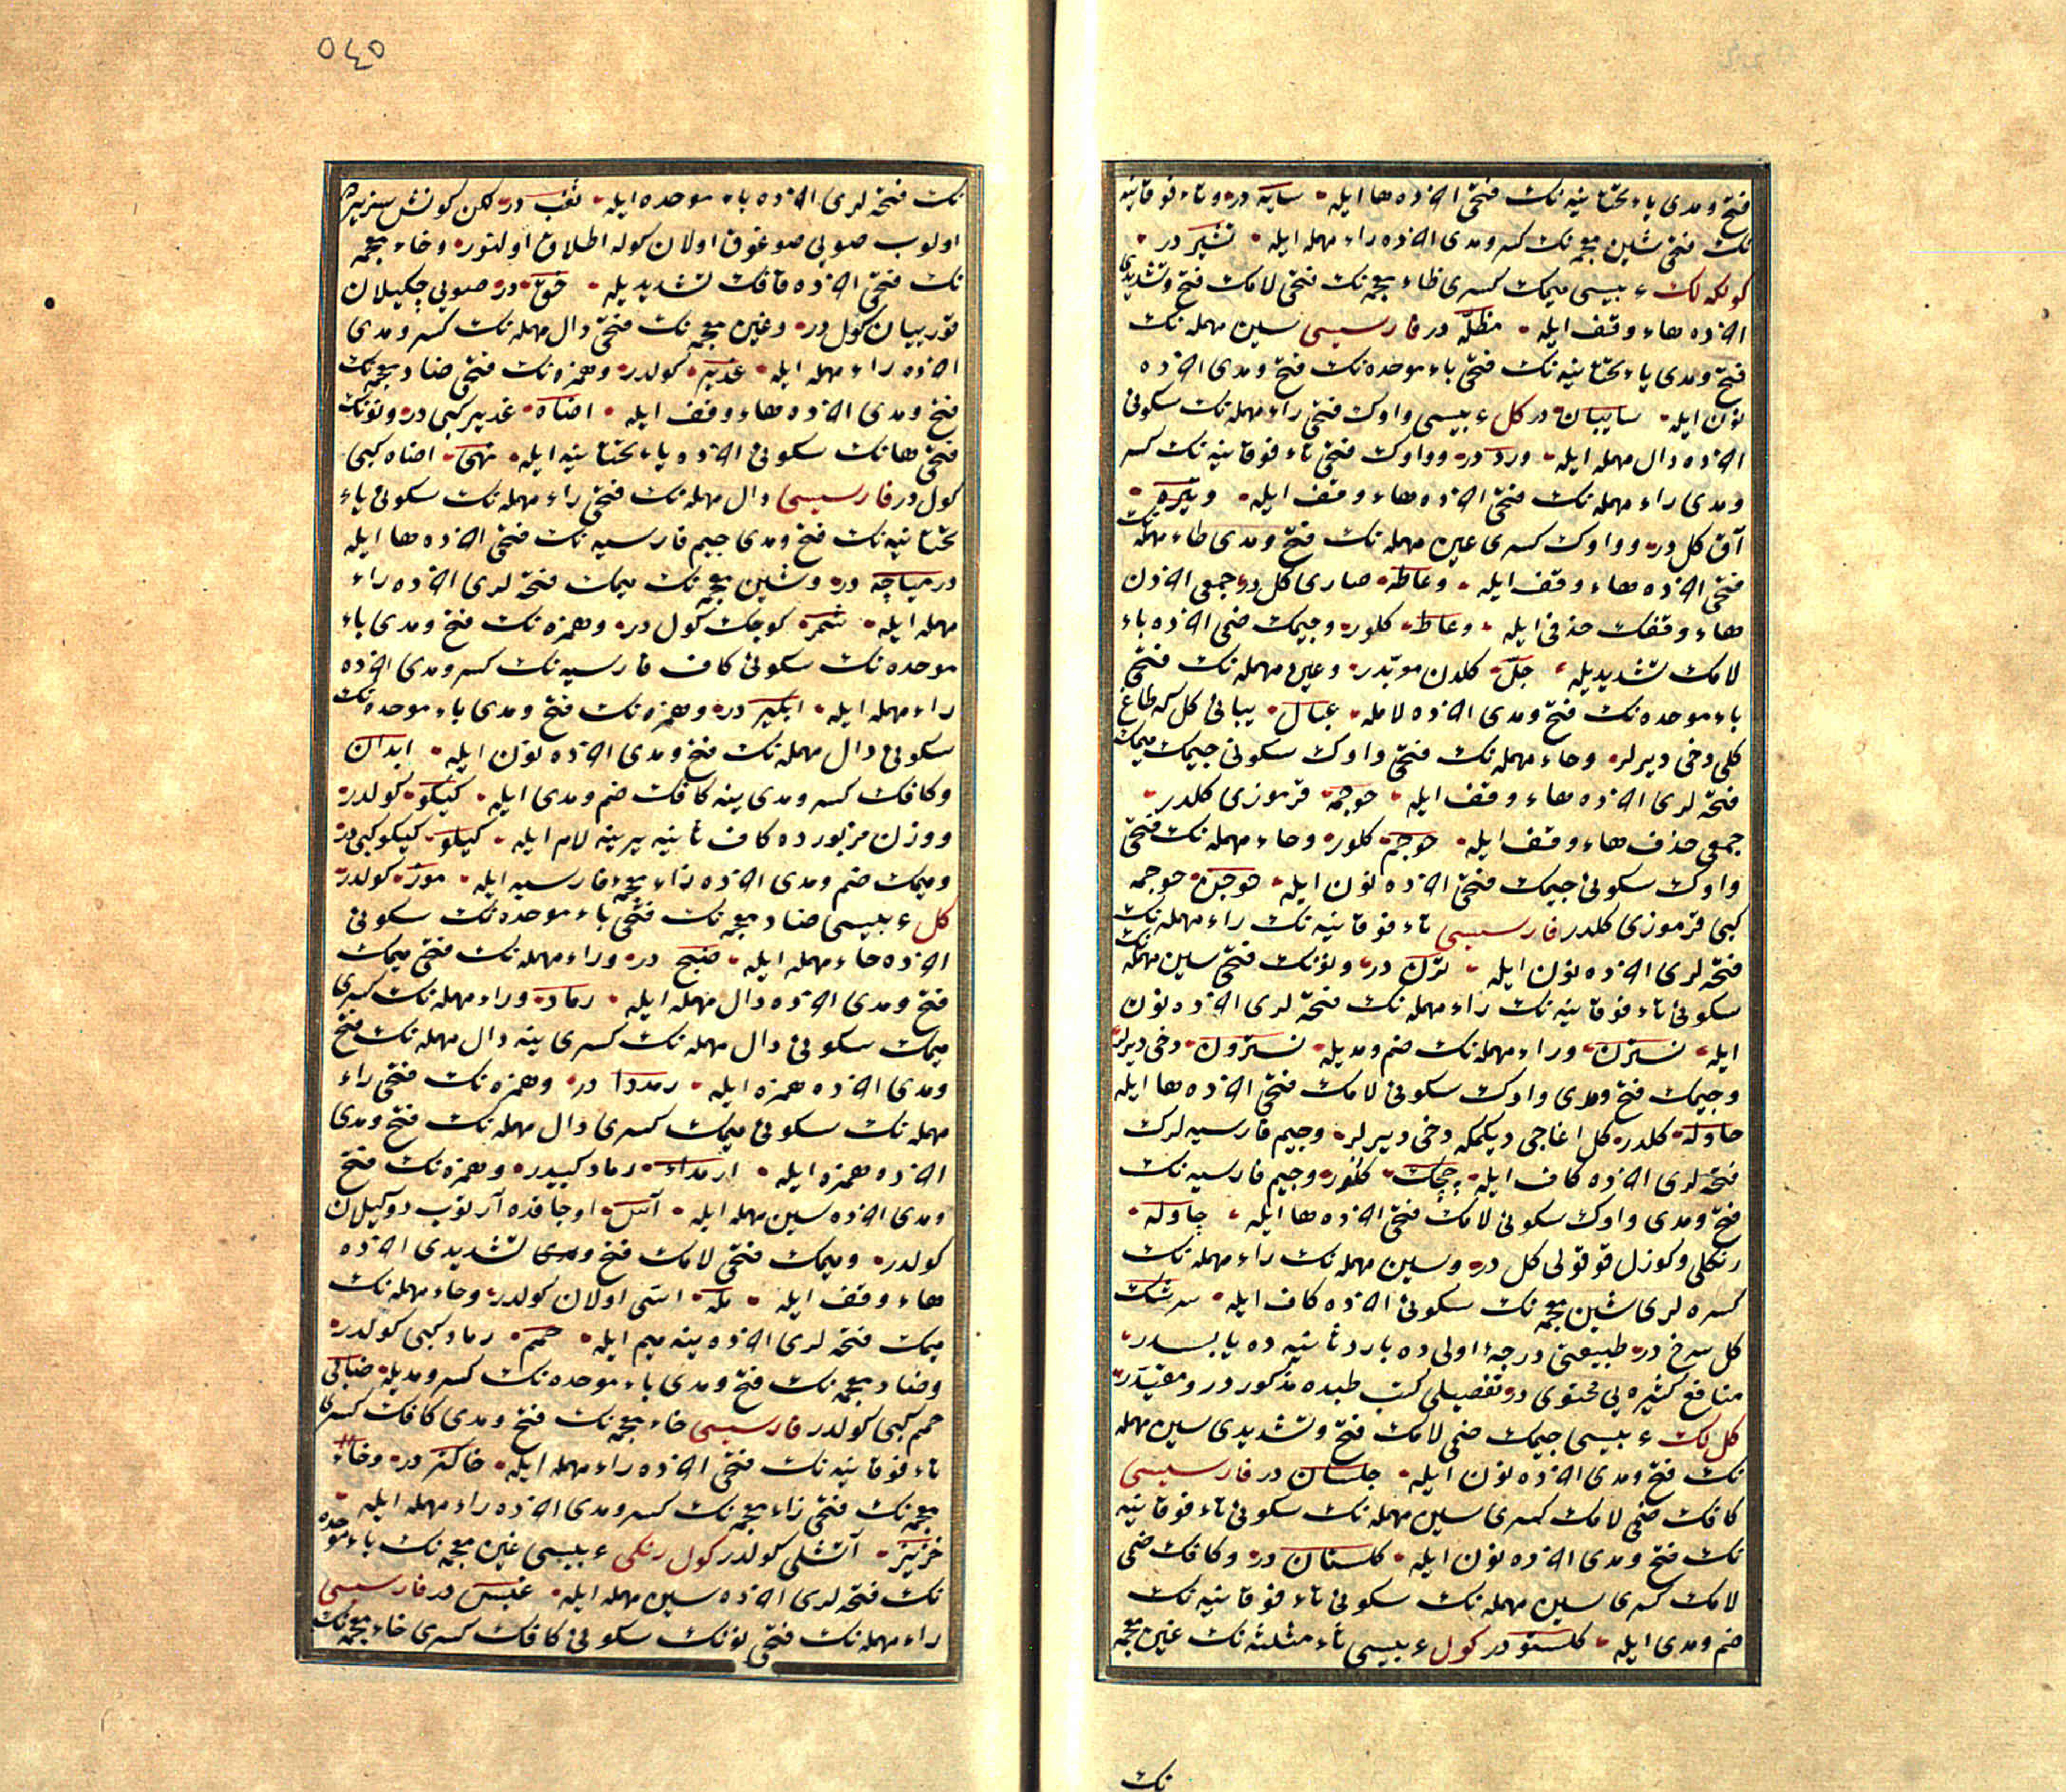 فتح و مدی یاء تحتانیه نك فتحی اخرده ها ایله سایه در وتاء فوقانیه
نك فتحی شین معجمه نك كسر و مدی اخرده راء مهمله ایله تشیر در
كولكه لك عربیسی میمك كسری ظاء معجمه نك فتحی لامك فتح وتشدیدی
اخرده هاء وقف ایله مظلّه در فارسیسی سین مهمله نك
فتح ومدی یاء تحتانیه نك فتحی باء موحده نك فتح ومدی اخرده
نون ایله سایبان در كل عربیسی واوك فتحی راء مهمله نك سكونی
اخرده دال مهمله ایله ورد در وواوك فتحی تاء فوقانیه نك كسر
ومدی راء مهمله نك فتحی اخرده هاء وقف ایله وتیره
آق كل در وواوك كسری عین مهمله نك فتح ومدی طاء مهمله نك
فتحی اخرده هاء وقف ایله وعاطه صاری كل در جمعی اخردن
هاء وقفك حذفی ایله وعاط كلور وجیمك ضمی اخرده
لامك تشدیدیله جلّ كلدن موبّدر وعین مهمله نك فتحی
باء موحده نك فتح ومدی اخرده لامله عبال یبانی كل كه طاغ
كلی دخی دیرلر وحاء مهمله نك فتحی واوك سكونی جیمك میمك
فتحه لری اخرده هاء وقف ایله حوجمه قرموزی كلدر
جمعی حذف هاء وقف ایله حوجم كلور وحاء مهمله نك فتحی
واوك سكونی جیمك فتحی اخرده نون ایله حوجن حوجمه
كبی قرموزی كلدر فارسیسی تاء فوقانیه نك راء مهمله نك
فتحه لری اخرده نون ایله ترن در ونونك فتحی سین مهمله نك
سكونی تاء فوقانیه نك راء مهمله نك فتحه لری اخرده نون
ایله نسترن وراء مهمله نك ضم ومدیله نسترون دخی دیرلر
وجیمك فتح ومدی واوك سكونی لامك فتحی اخرده ها ایله
جاوله كلدر كل اغاجی دیكمكه دخی دیرلر وجیم فارسیه لرك
فتحه لری اخرده كاف ایله چچك كلور وجیم فارسیه نك
فتح ومدی واوك سكونی لامك فتحی اخرده ها ایله چاوله
رنكلی وكوزل قوقولی كل در وسین مهمله نك راء مهمله نك
كسره لری شین معجمه نك سكونی اخرده كاف ایله سرشك
كل سرخ در طبیعتی درجهٔ اولی ده بارد ثانیه ده یابسدر
منافع كثیره یی محتوی در تفصیلی كتب طبده مذكور در ومقیّددر
كل لك عربیسی جیمك ضمی لامك فتح وتشدیدی سین مهمله
نك فتح ومدی اخرده نون ایله جلسان در فارسیسی
كافك ضمی لامك كسری سین مهمله نك سكونی تاء فوقانیه
نك فتح ومدی اخرده نون ایله كلستان در وكافك ضمی
لامك كسری سین مهمله نك سكونی تاء فوقانیه نك
ضم ومدی ایله كلستو در كول عربیسی ثاء مثلثه نك غین معجمه
نك
٥٤٥
نك فتحه لری اخرده باء موحده ایله ثغب در لكن كونش سز یرده
اولوب صویی صوغوق اولان كوله اطلاق اولنور وخاء معجمه
نك فتحی اخرده قافك تشدیدیله خقّ در صویی چكیلان
قورییان كول در وغین معجمه نك فتحی دال مهمله نك كسر ومدی
اخرده راء مهمله ایله غدیر كولدر وهمزه نك فتحی ضاد معجمه نك
فتح ومدی اخرده هاء وقف ایله اضاه غدیر كبی در ونونك
فتحی هانك سكونی اخرده یاء تحتانیه ایله نهی اضاه كبی
كول در فارسیسی دال مهمله نك فتحی راء مهمله نك سكونی یاء
تحتانیه نك فتح ومدی جیم فارسیه نك فتحی اخرده ها ایله
دریاچه در وشین معجمه نك میمك فتحه لری اخرده راء
مهمله ایله شمر كوچك كول در وهمزه نك فتح ومدی باء
موحده نك سكونی كاف فارسیه نك كسر ومدی اخرده
راء مهمله ایله آبگیر در وهمزه نك فتح ومدی باء موحده نك
سكونی دال مهمله نك فتح ومدی اخرده نون ایله ابدان
وكافك كسر ومدی ینه كافك ضم ومدی ایله كیكو كولدر
ووزن مزبورده كاف ثانیه یرینه لام ایله كیلو كیكو كبی در
ومیمك ضم ومدی اخرده زاء معجمهٔ فارسیه ایله موژ كولدر
كل عربیسی ضاد معجمه نك فتحی باء موحده نك سكونی
اخرده حاء مهمله ایله ضبح در وراء مهمله نك فتحی میمك
فتح ومدی اخرده دال مهمله ایله رماد وراء مهمله نك كسری
میمك سكونی دال مهمله نك كسری ینه دال مهمله نك فتح
ومدی اخرده همزه ایله رمددا در وهمزه نك فتحی راء
مهمله نك سكونی میمك كسری دال مهمله نك فتح ومدی
اخرده همزه ایله ارمداء رماد كبیدر وهمزه نك فتح
ومدی اخرده سین مهمله ایله آس اوجاقده آرتوب دوكیلان
كولدر ومیمك فتحی لامك فتح وتشدیدی اخرده
هاء وقف ایله ملّه اسّی اولان كولدر وحاء مهمله نك
میمك فتحه لری اخرده ینه میم ایله حمم رماد كبی كولدر
وضاد معجمه نك فتح ومدی باء موحده نك كسر ومدیله ضابی
حمم كبی كولدر فارسیسی خاء معجمه نك فتح ومدی كافك كسری
تاء فوقانیه نك فتحی اخرده راء مهمله ایله خاكتر در وخاء
معجمه نك فتحی زاء معجمه نك كسر ومدی اخرده راء مهمله ایله
خزیر آتشلی كولدر كول رنكی عربیسی غین معجمه نك باء موحده
نك فتحه لری اخرده سین مهمله ایله غبس در فارسیسی
راء مهمله نك فتحی نونك سكونی كافك كسری خاء معجمه نك